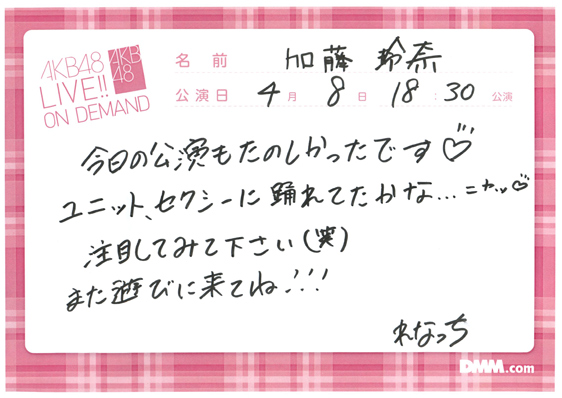 AKB48
LIVE!!
ON DEMAND
AKB
48
名前 加藤 玲奈
公演日 4月 8日 18:30 公演
今日の公演もたのしかったです♡
ユニット、セクシーに踊れてたかな…ニヤッ♡
注目してみて下さい(笑)
また遊びに来てね!!!
れなっち
DMM.com